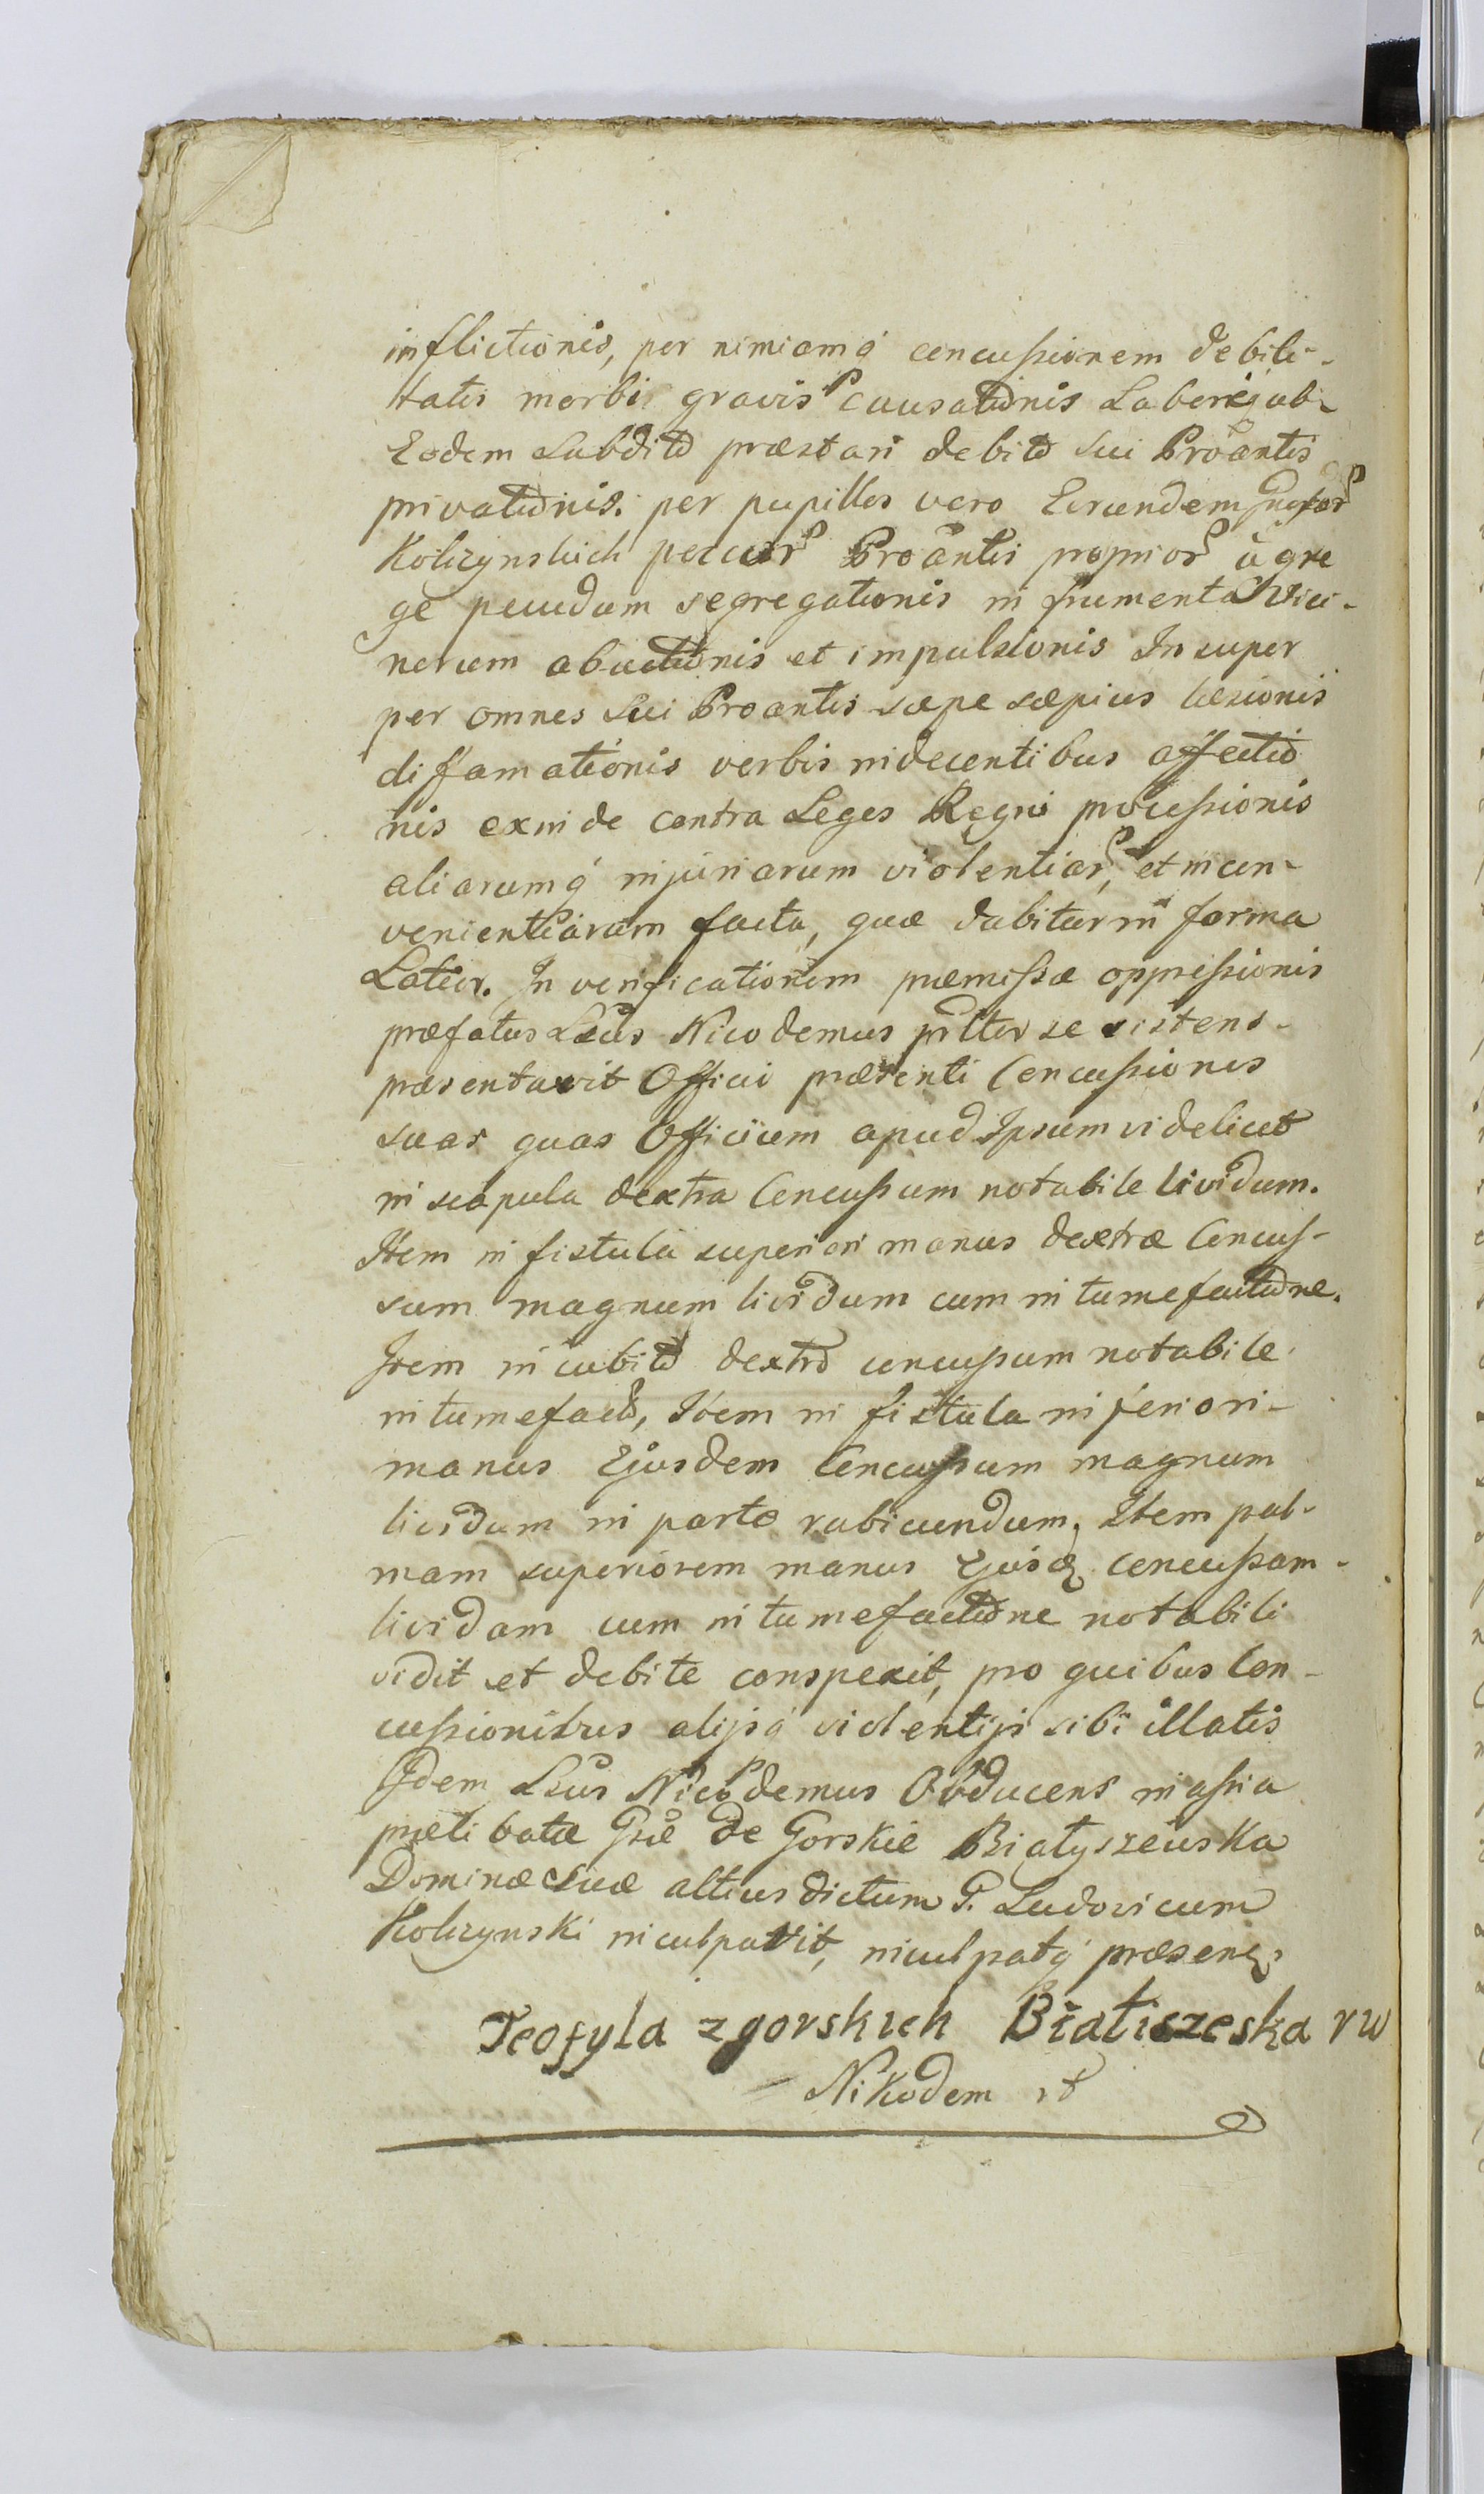 inflictionis, per nimiamq́ concussionem debili-
tatis morbi gravis causationis Laborisq́ ab
Eodem Subdito præstari debito sui Proantis
privationis. per pupillos vero Eorundem
Kolczynskich pecor Proantis proprior à gre
ge pecudum segregationis in frumenta Vici-
norum abactionis et impulsionis Insuper
per omnes sui Proantis sæpe sæpius læsionis
diffamationis verbis indecentibus affectio
nis exinde contra Leges Regni processionis
aliarumq́ injuriarum violentiar, et incon-
venientiarum facta, quæ dabitur in forma
Latior. In verificationem præmissæ oppressionis
præfatus Lsus Nicodemus pnlter se sistens
præsentavit Officio præsenti Concussiones
suas quas Officium apud Ipsum videlicet
in scapula dextra Concussum notabile lividum.
Item in fistula superiori manus dextræ Concus-
sum magnum lividum cum intumefactione.
Item in cubito dextro concussum notabile
intumefacto, Item in fistula inferiori
manus Ejusdem Concussum magnum
lividum in parte rubicundum, Item pal-
mam superiorem manus Ejusd concussam
lividam cum intumefactione notabili
vidit et debite conspexit, pro quibus Con-
cussionibus alijsq́ violentijs sibi illatis
Idem Lsus Nicodemus Obducens
prælibatæ Gsæ de Gorskie Białyszewska
Dominæ suæ altius dictum G. Ludovicum
Kolczynski inculpavit, inculpatq́ præsen.
Teofyla zgorskich Białiszeska rw
Nikodem